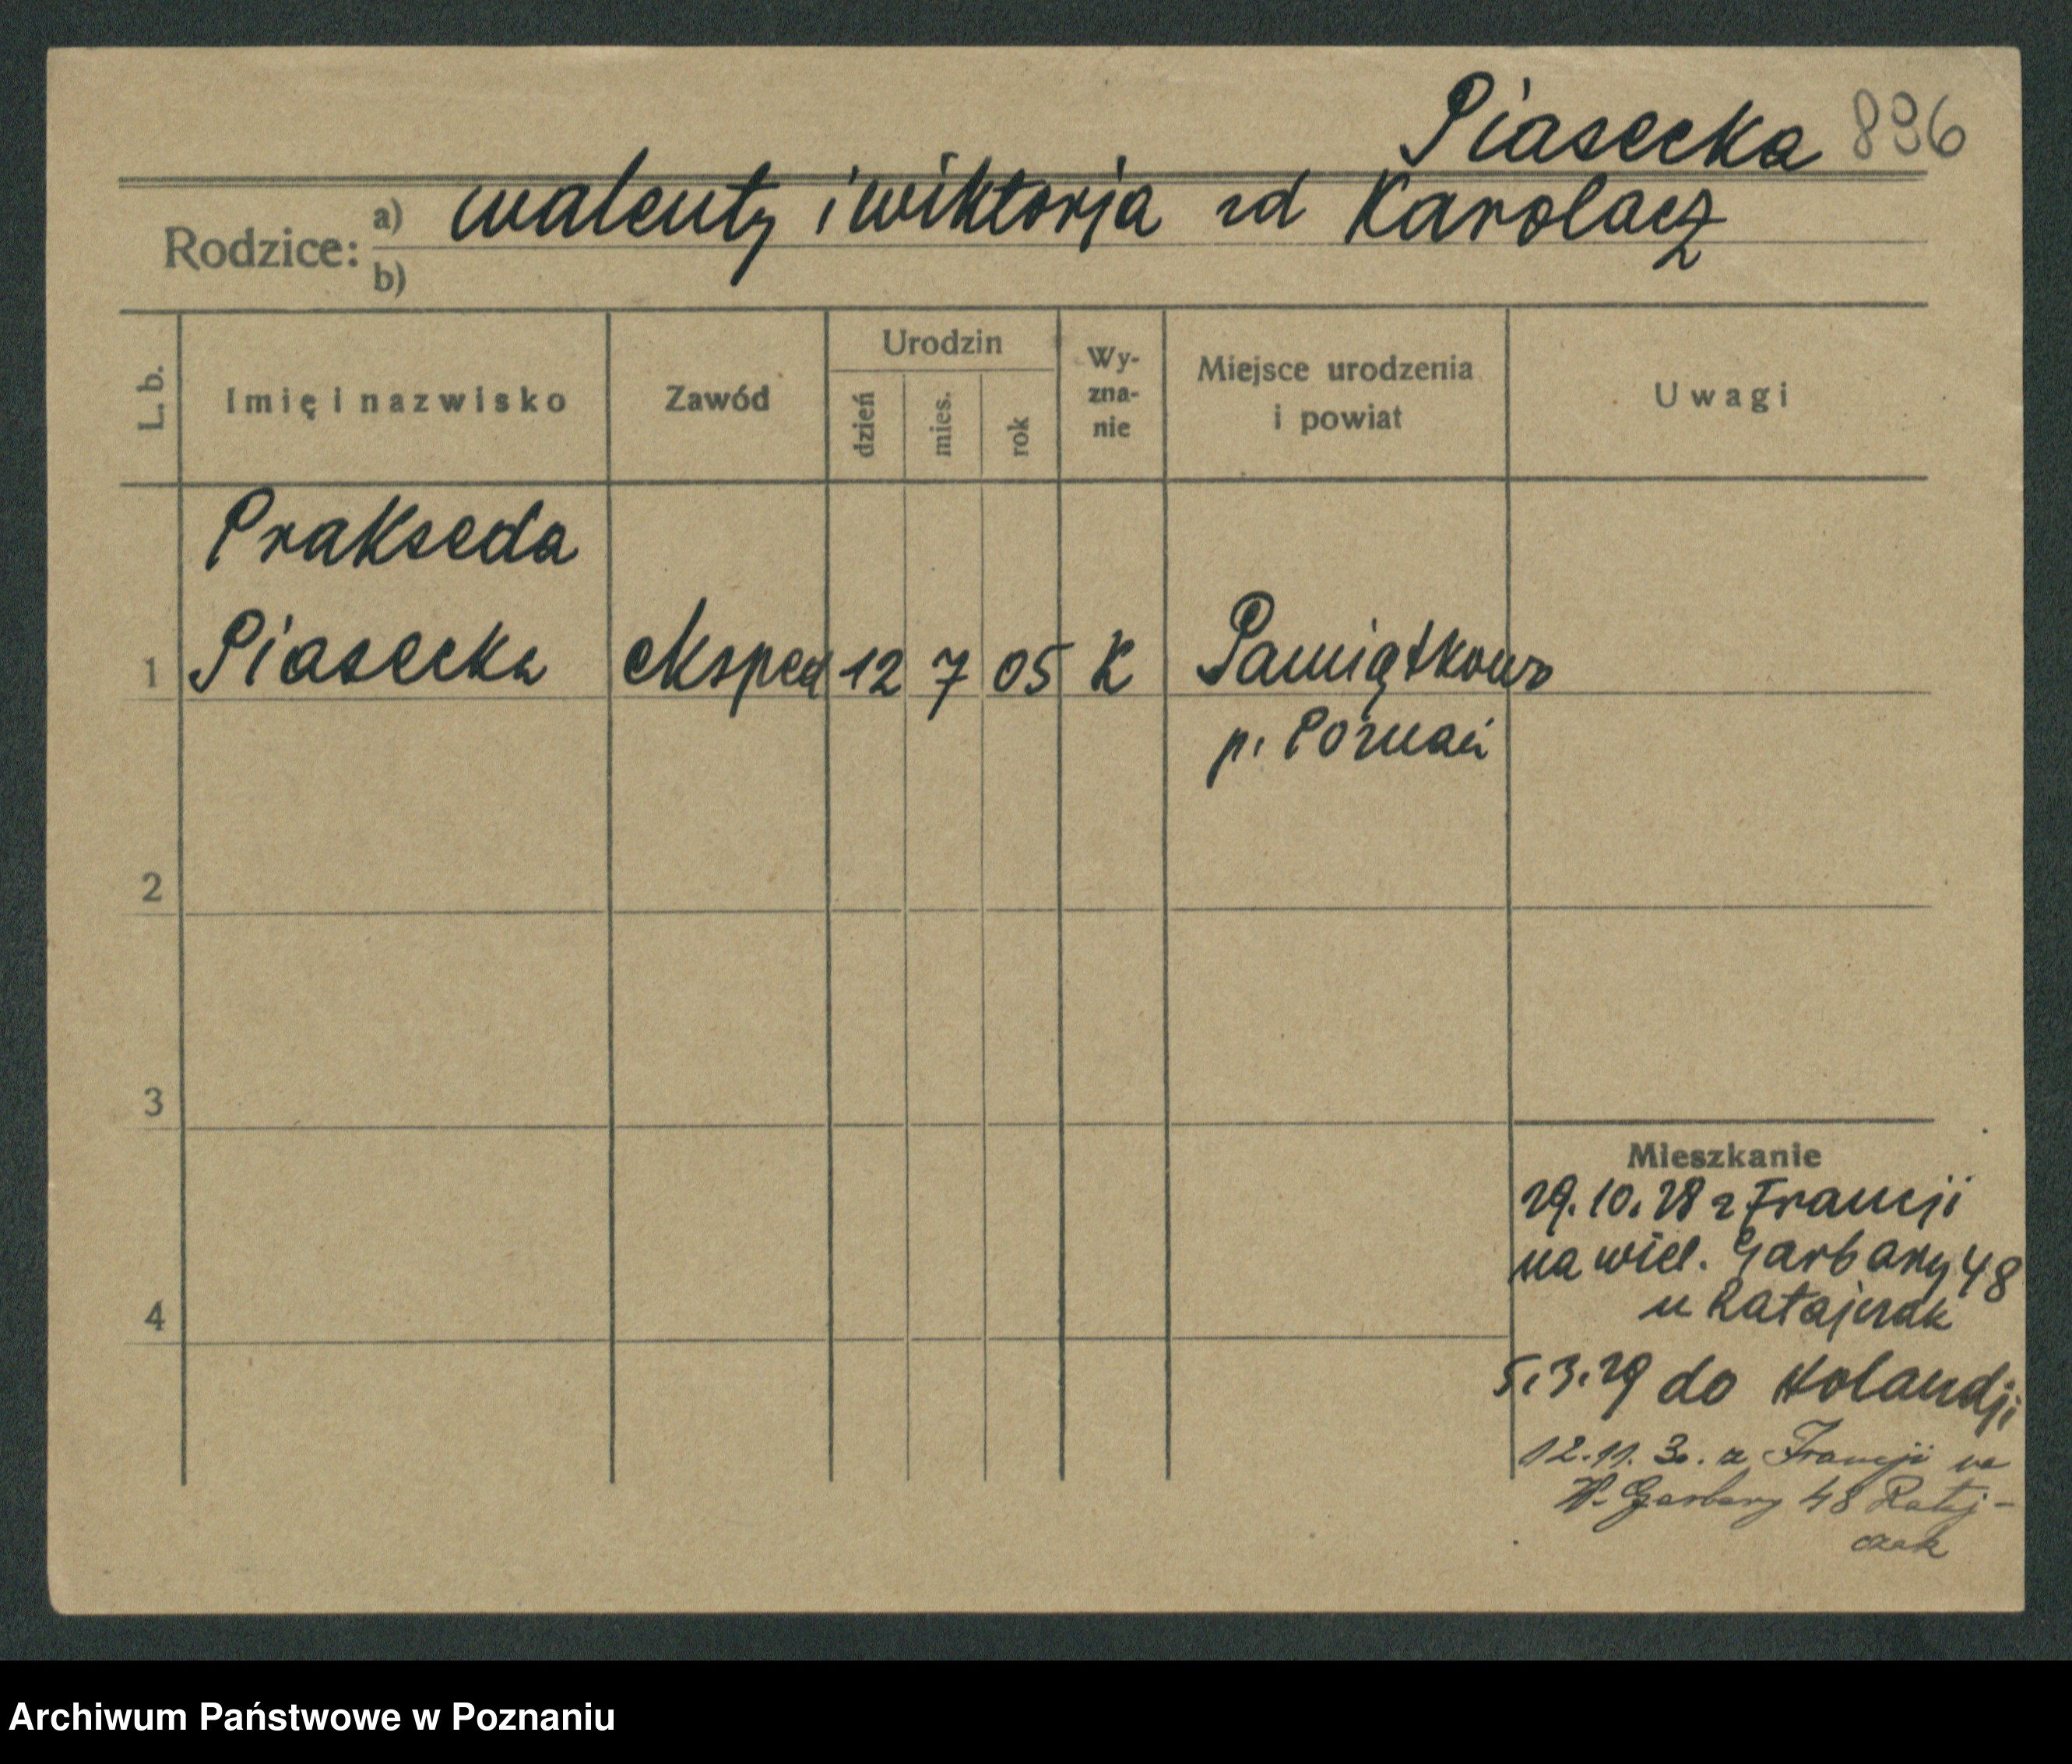 Piasecka 896
Rodzice: a) walenty i wiktorja zd Karolacz
b)
L. b. Imię i nazwisko Zawód Urodzin dzień mies. rok Wy-zna-nie Miejsce urodzenia i powiat Uwagi
Prakseda
1 Piasecka eksped 12 7 05 K Pamiątkowo
p. Poznań
2
3
Mieszkanie
29.10.28 z Francji
na wiel. Garbary 48
4 u Ratajczak
5.3.29 do Holandji
12.11.30. z Francji na
W. Garbary 48 Rataj-
czak
Archiwum Państwowe w Poznaniu